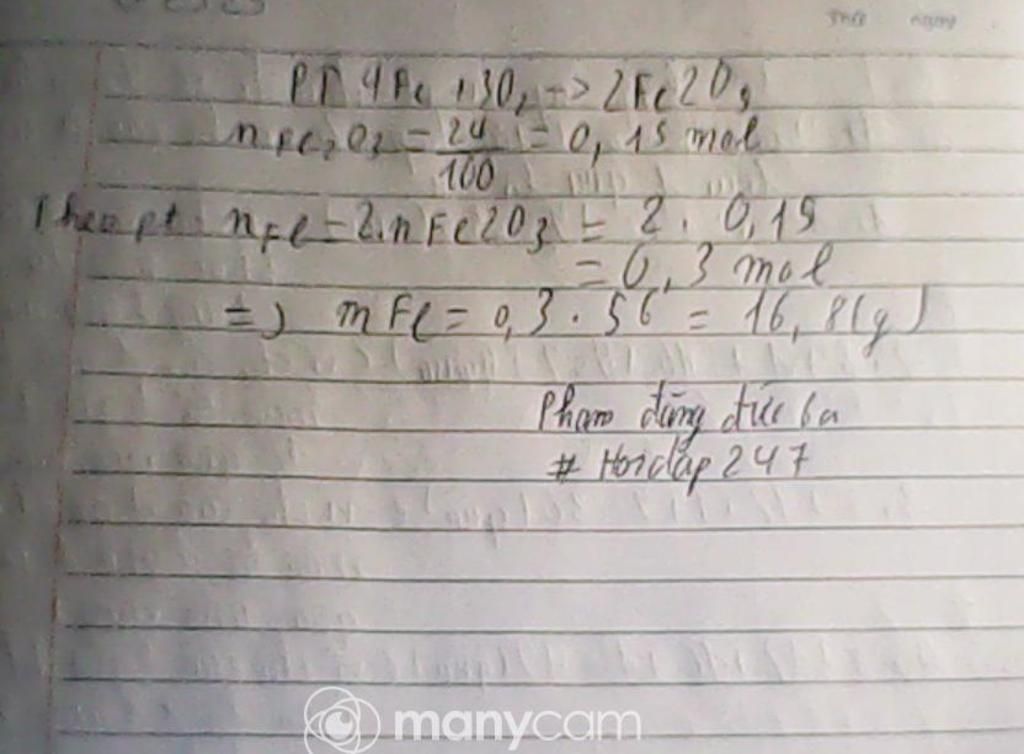 PT 4Fe + 3O2 -> 2Fe2O3
nFe2O3 = 24/160 = 0,15 mol
Theo pt: nFe = 2.nFe2O3 = 2 . 0,15
= 0,3 mol
=> mFe = 0,3 . 56 = 16,8(g)
Phạm dũng đức 6a
# Hoidap 247
manycam